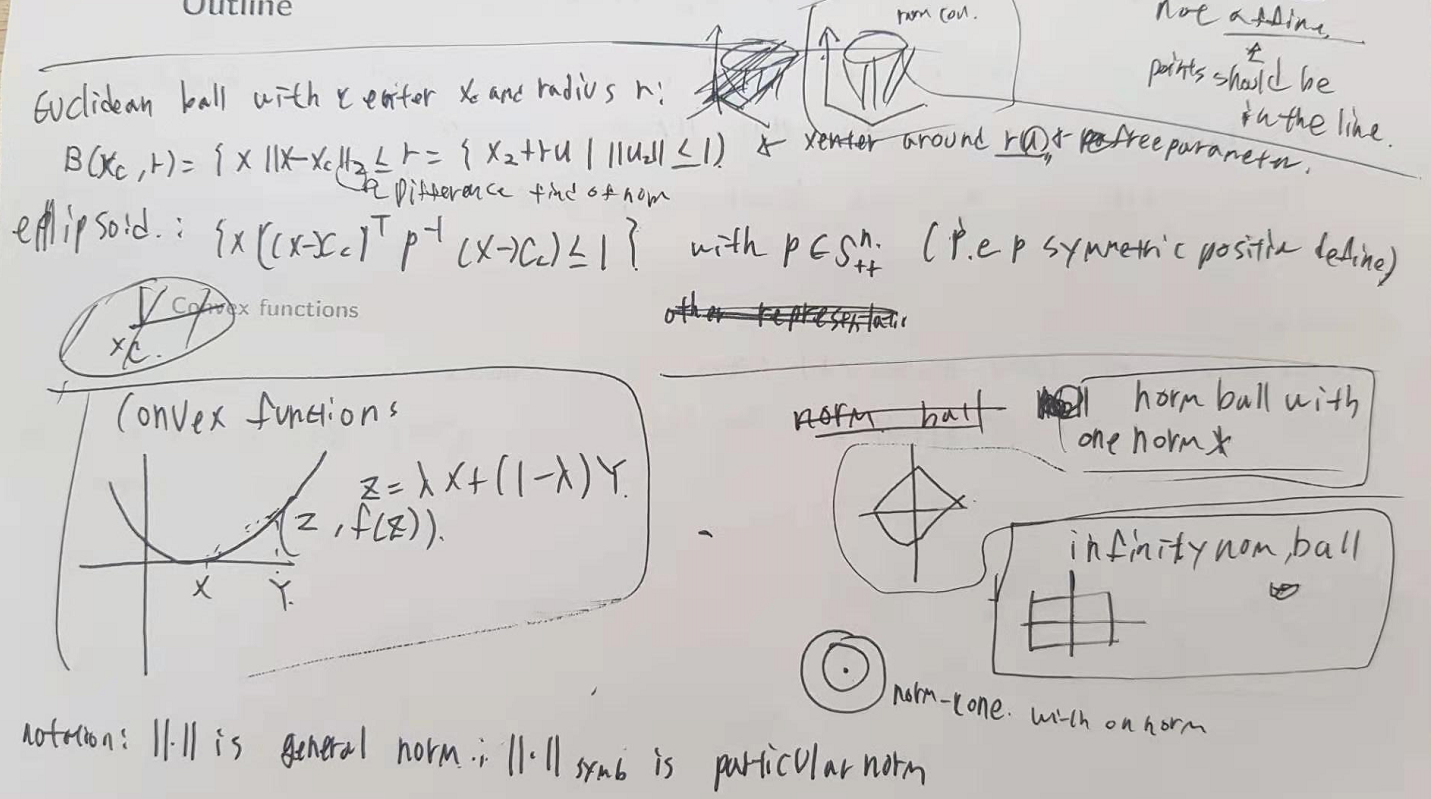 Outline
not affine,
points should be
in the line.
Euclidean ball with center xc and radius r:
B(xc,r)= {x ||x-xc||2 ≤ r = {x2+ru | ||u2|| ≤ 1) & xenter around r(u) & free parameter.
Difference find of nom
ellipsoid.: {x[(x-xc)ᵀ p⁻¹ (x-xc) ≤ 1} with p ∈ Sⁿ₊₊. (P.e p symmetric positiv define)
Convex functions
xc.
other representati
Convex functions
z = λx+(1-λ)Y.
(z, f(z)).
X Y.
norm ball
norm ball with
one norm
infinity nom, ball
norm-cone. with on norm
notation: ||.|| is general norm.; ||.|| symb is particular norm